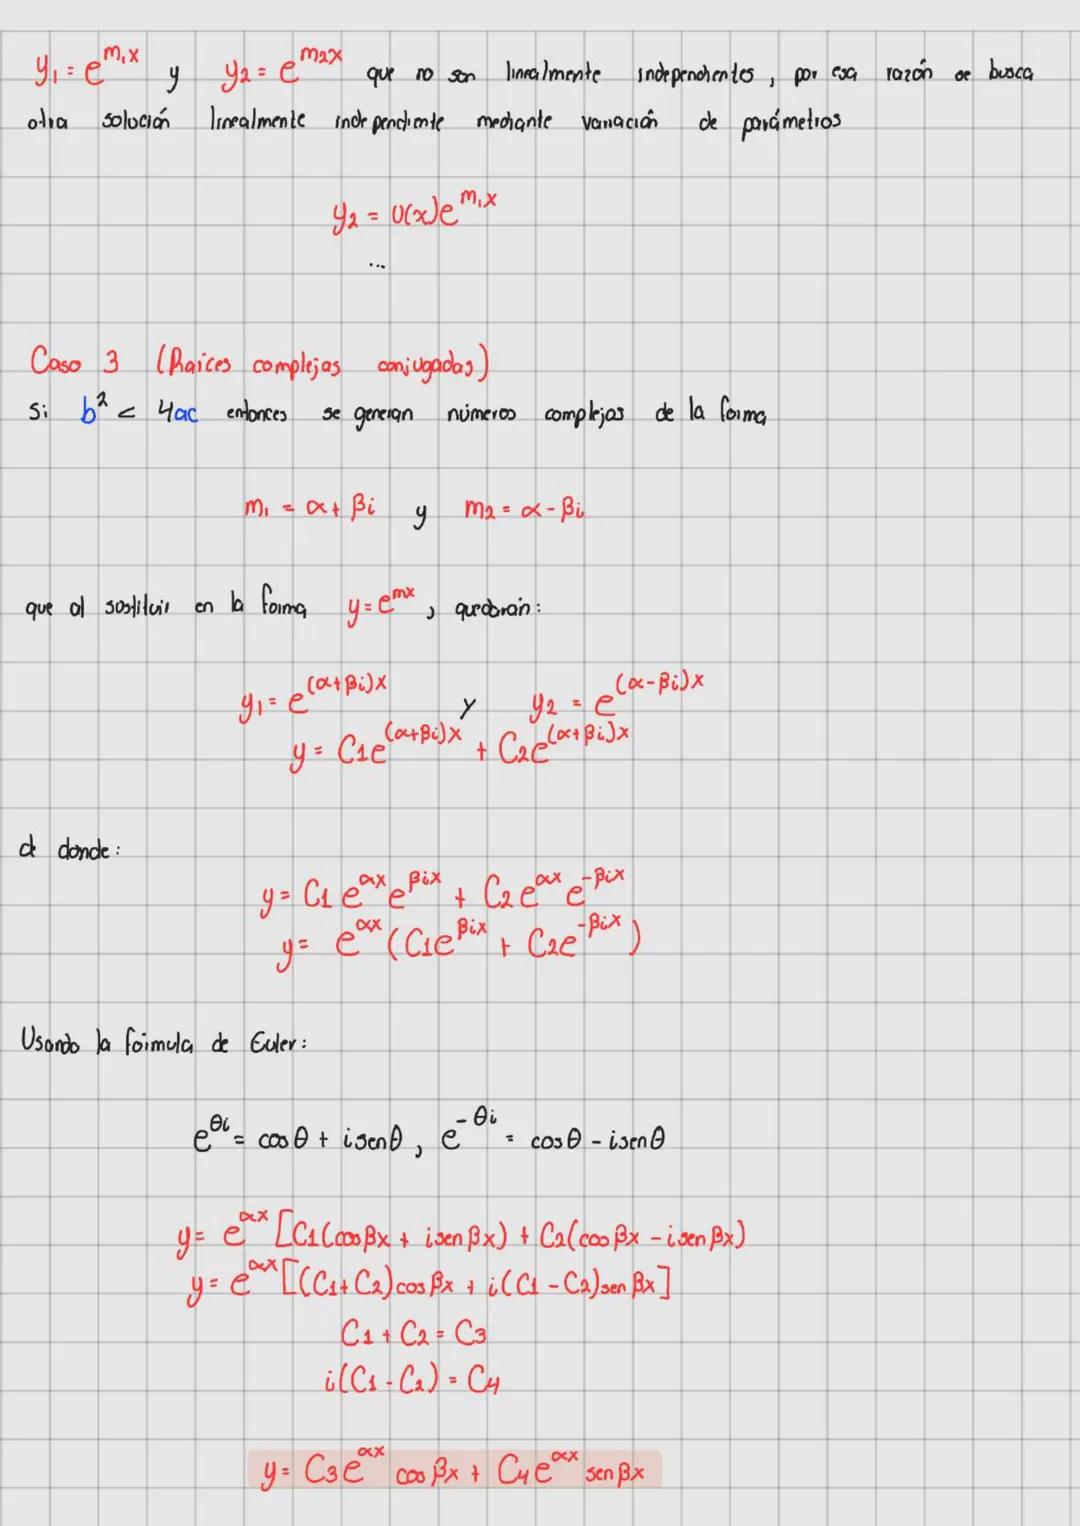 y₁ = e^{m₁x} y y₂ = e^{m₂x} que no son linealmente independientes, por esa razón se busca
otra solución linealmente independiente mediante variación de parámetros
y₂ = U(x)e^{m₁x}
...
Caso 3 (Raíces complejas conjugadas)
Si b² < 4ac entonces se generan números complejos de la forma
m₁ = α + βi y m₂ = α - βi
que al sostituir en la forma y = e^{mx}, quedarían:
y₁ = e^{(α+βi)x} y y₂ = e^{(α-βi)x}
y = C₁e^{(α+βi)x} + C₂e^{(α+βi)x}
de donde:
y = C₁ e^{αx} e^{βix} + C₂ e^{αx} e^{-βix}
y = e^{αx} (C₁e^{βix} + C₂e^{-βix})
Usando la fórmula de Euler:
e^{θi} = cos θ + i sen θ, e^{-θi} = cos θ - i sen θ
y = e^{αx} [C₁(cos βx + i sen βx) + C₂(cos βx - i sen βx)
y = e^{αx} [(C₁ + C₂) cos βx + i(C₁ - C₂) sen βx]
C₁ + C₂ = C₃
i(C₁ - C₂) = C₄
y = C₃e^{αx} cos βx + C₄e^{αx} sen βx